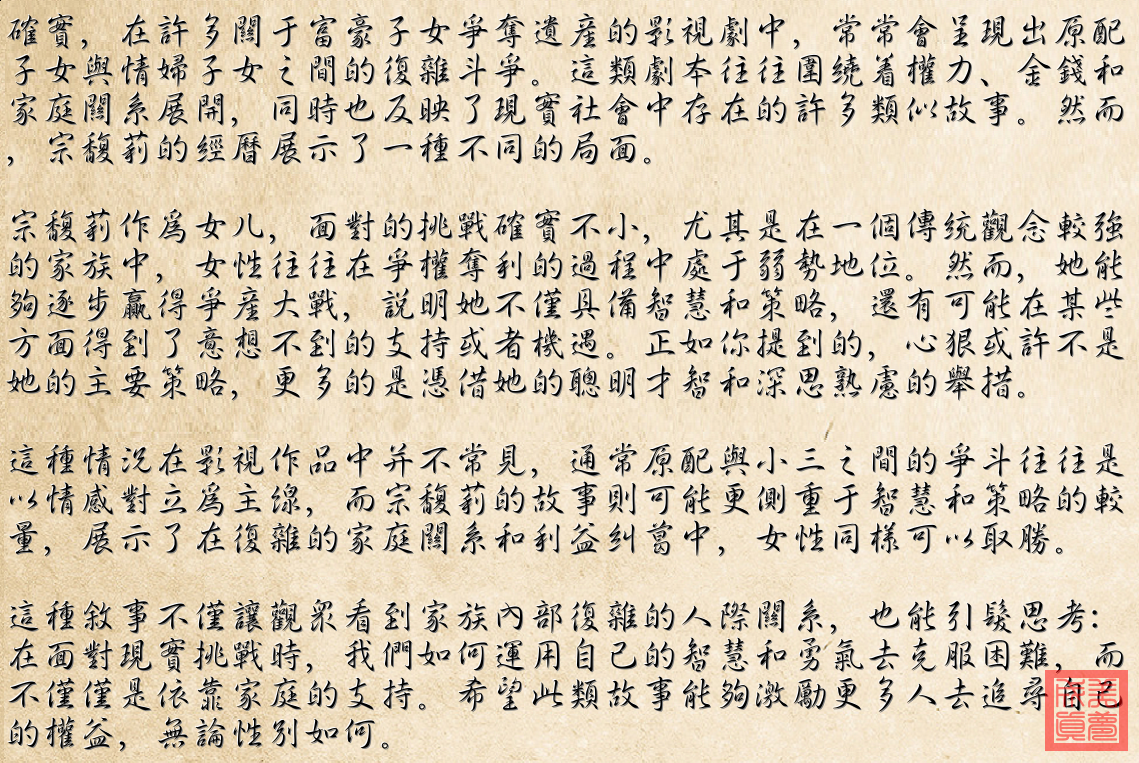 確實，在許多關于富豪子女爭奪遺産的影視劇中，常常會呈現出原配
子女與情婦子女之間的復雜斗爭。這類劇本往往圍繞着權力、金錢和
家庭關系展開，同時也反映了現實社會中存在的許多類似故事。然而
，宗馥莉的經曆展示了一種不同的局面。
宗馥莉作爲女儿，面對的挑戰確實不小，尤其是在一個傳統觀念較強
的家族中，女性往往在爭權奪利的過程中處于弱勢地位。然而，她能
夠逐步贏得爭産大戰，説明她不僅具備智慧和策略，還有可能在某些
方面得到了意想不到的支持或者機遇。正如你提到的，心狠或許不是
她的主要策略，更多的是憑借她的聰明才智和深思熟慮的舉措。
這種情況在影視作品中并不常見，通常原配與小三之間的爭斗往往是
以情感對立爲主線，而宗馥莉的故事則可能更側重于智慧和策略的較
量，展示了在復雜的家庭關系和利益糾葛中，女性同樣可以取勝。
這種敘事不僅讓觀衆看到家族內部復雜的人際關系，也能引髮思考：
在面對現實挑戰時，我們如何運用自己的智慧和勇氣去克服困難，而
不僅僅是依靠家庭的支持。希望此類故事能夠激勵更多人去追尋自己
的權益，無論性別如何。